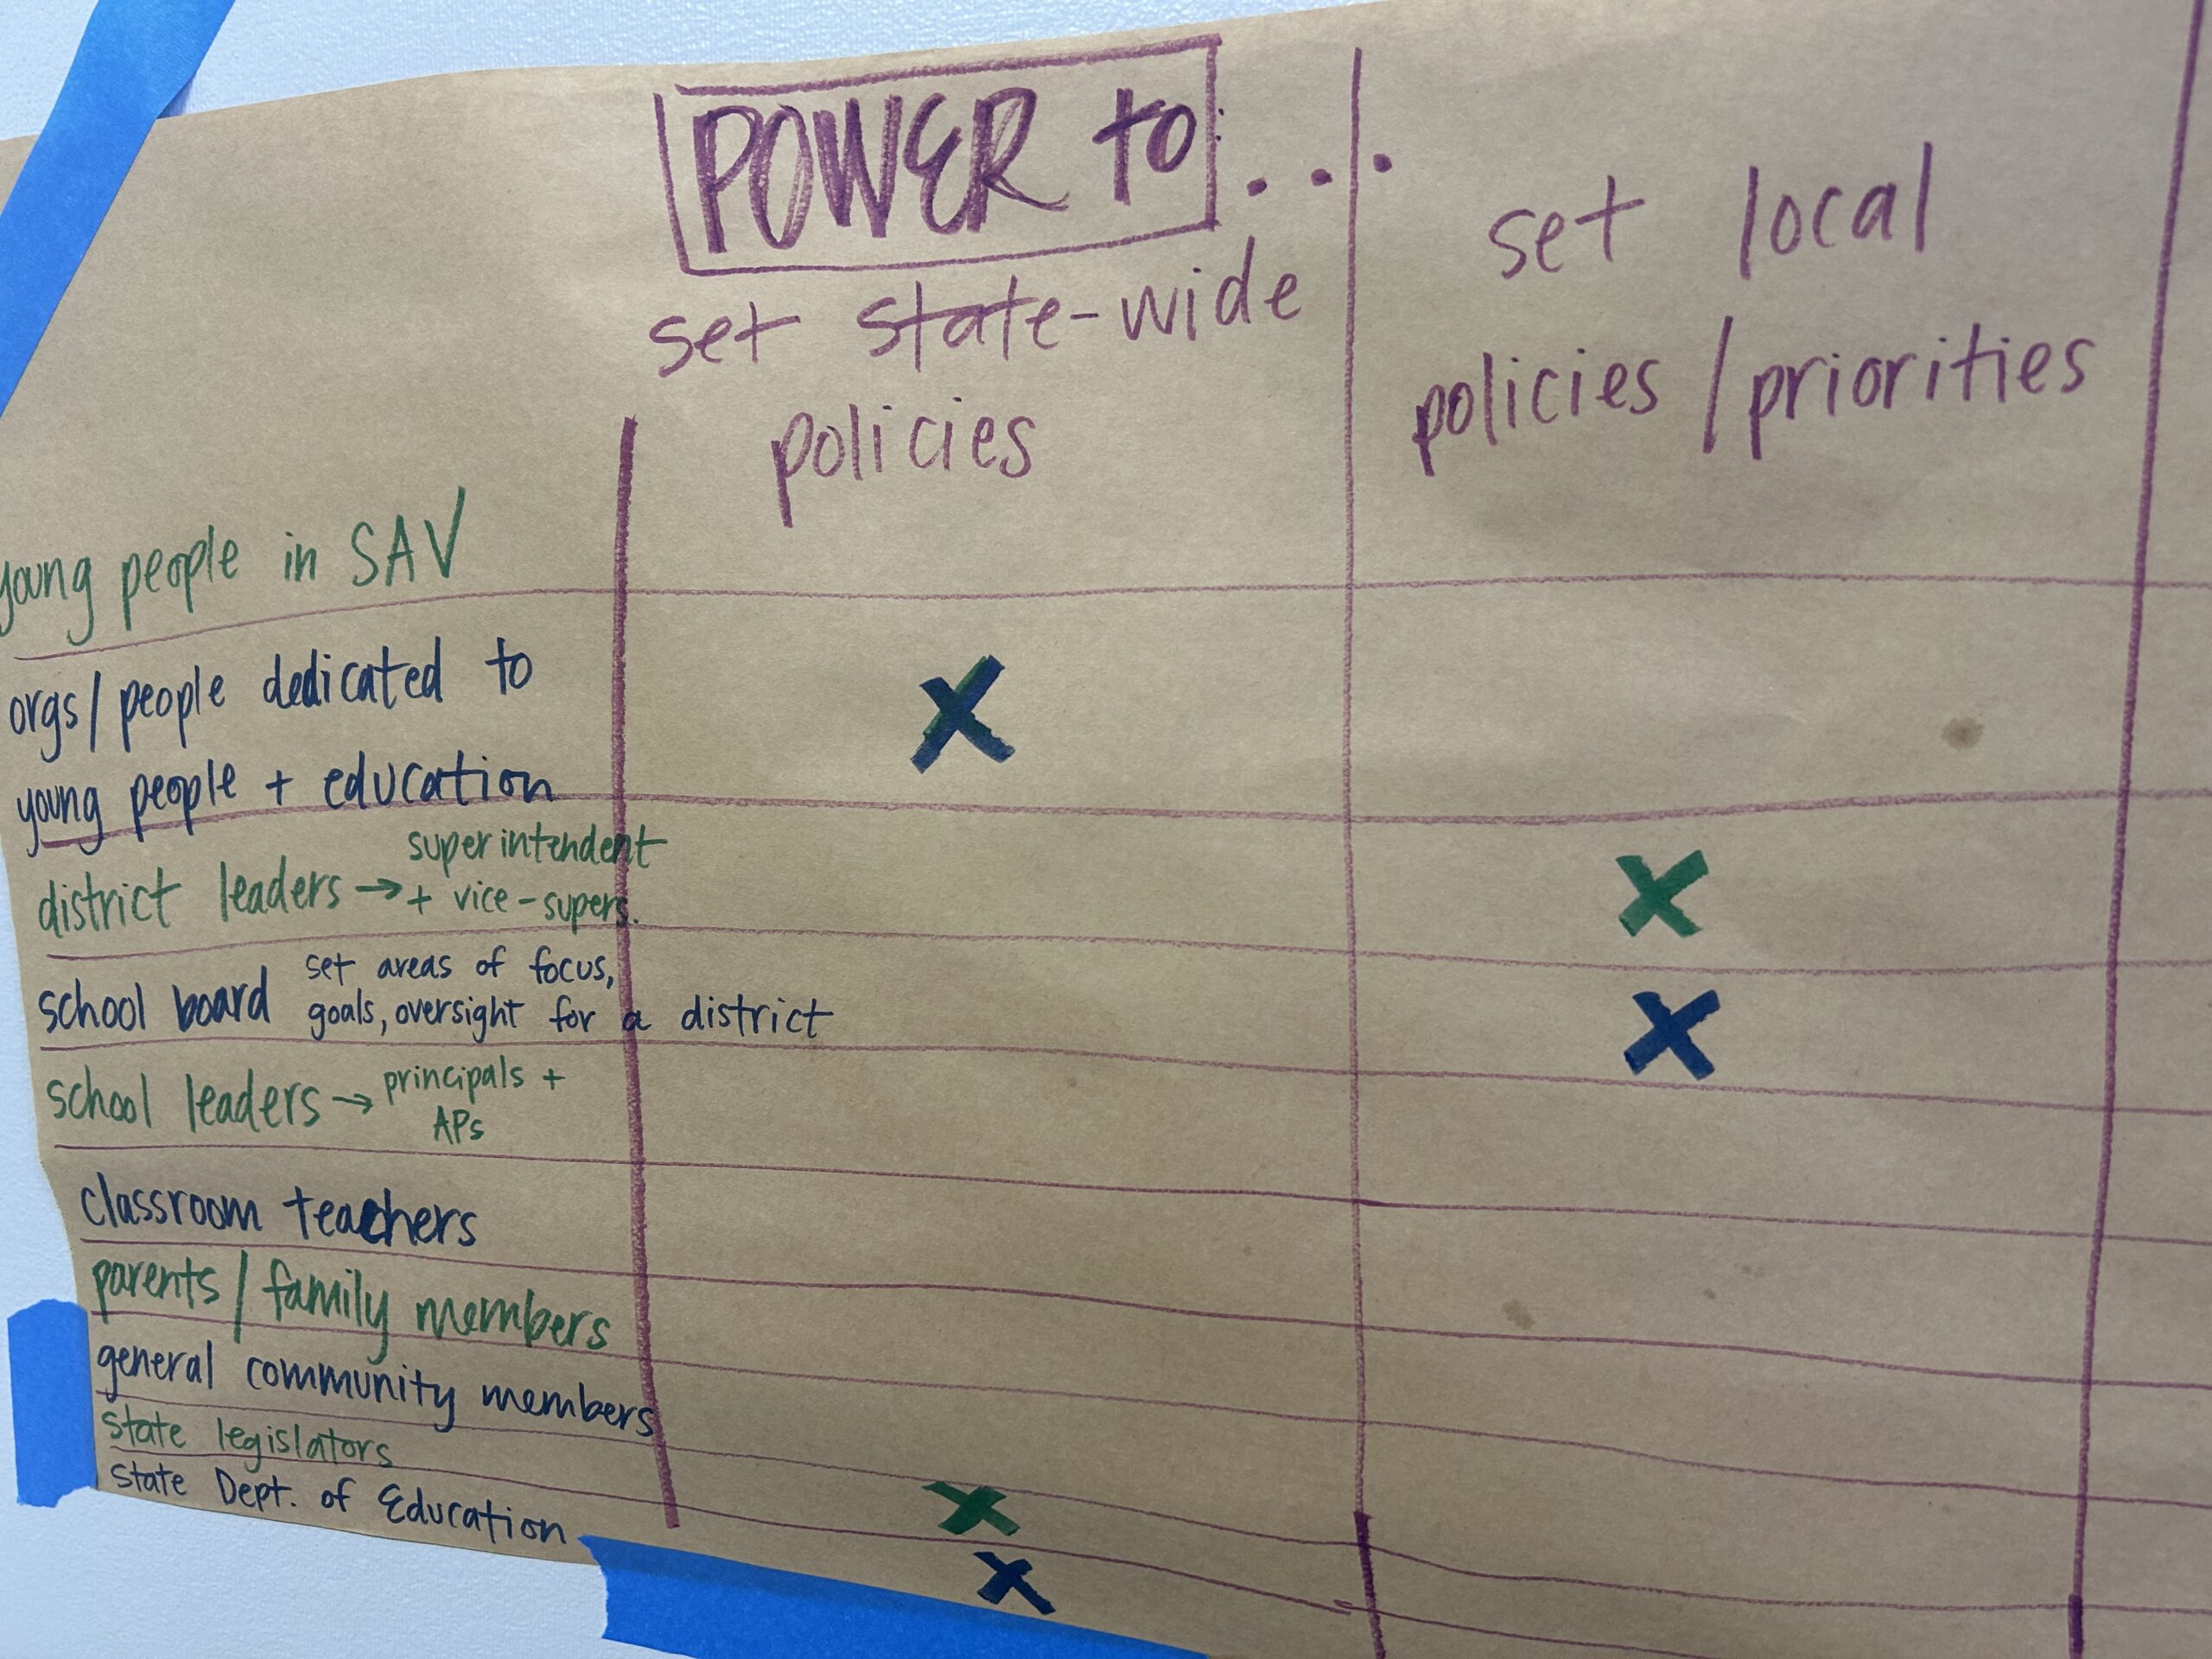 POWER to...
set state-wide
policies
set local
policies/priorities
young people in SAV
orgs/people dedicated to
young people + education
X
district leaders → superintendent
+ vice-supers.
X
school board set areas of focus,
goals, oversight for a district
X
school leaders → principals +
APs
classroom teachers
parents/family members
general community members
state legislators
X
State Dept. of Education
X